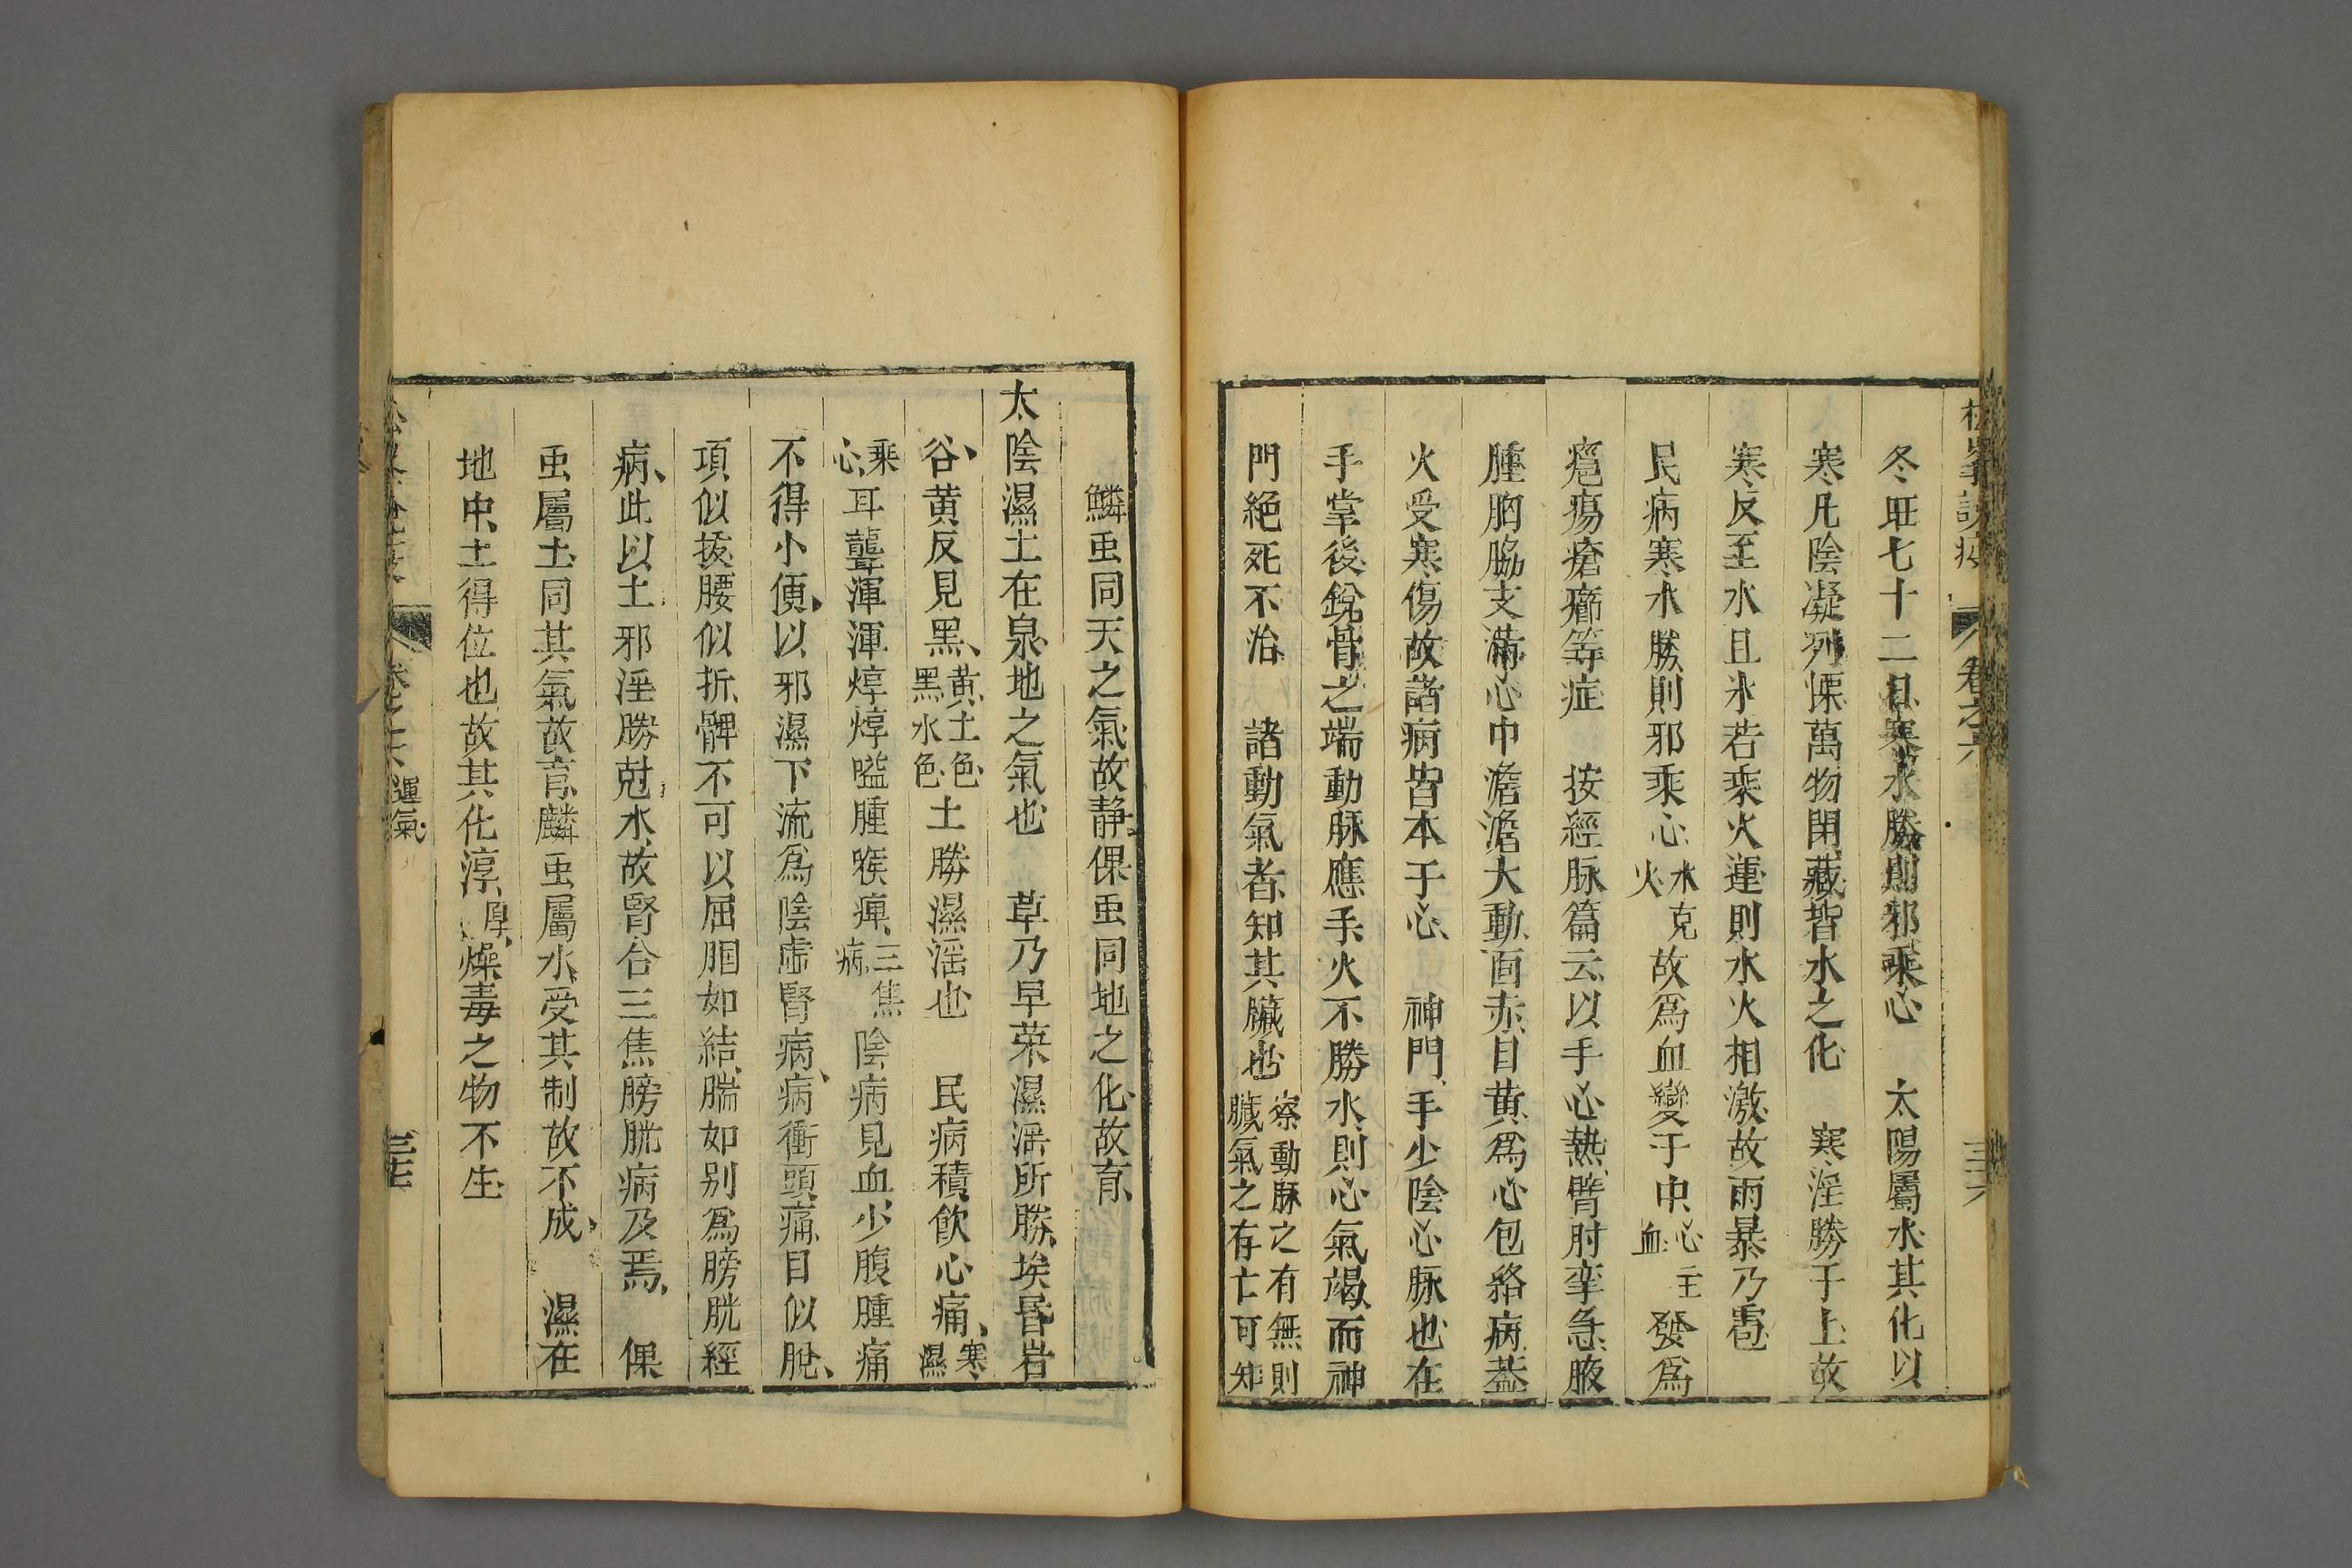 松峯說疫 卷之六 三十六
冬旺七十二日寒水勝則邪乘心 太陽屬水其化以
寒凡陰凝冽慄萬物閉藏皆水之化 寒淫勝于上故
寒反至水且氷若乘火運則水火相激故雨暴乃雹
民病寒水勝則邪乘心水克火故爲血變于中心主血發爲
癰瘍瘡癤等症 按經脉篇云以手心熱臂肘攣急腋
腫胸脇支滿心中澹澹大動面赤目黃爲心包絡病葢
火受寒傷故諸病皆本于心 神門手少陰心脉也在
手掌後銳骨之端動脉應手火不勝水則心氣竭而神
門絕死不治 諸動氣者知其臟也察動脉之有無則臟氣之存亡可知
鱗虫同天之氣故靜倮虫同地之化故育
太陰濕土在泉地之氣也 草乃早荣濕淫所勝埃昏岩
谷黄反見黑黃土色黑水色土勝濕淫也 民病積飲心痛寒濕
乘心耳聾渾渾焞焞嗌腫喉痺三焦病陰病見血少腹腫痛
不得小便以邪濕下流爲陰虛腎病病衝頭痛目似脫
項似拔腰似折髀不可以屈膕如結腨如别爲膀胱經
病此以土邪淫勝尅水故腎合三焦膀胱病及焉 倮
虫屬土同其氣故育鱗虫屬水受其制故不成 濕在
地中土得位也故其化淳厚燥毒之物不生
卷之六 運氣 三十七